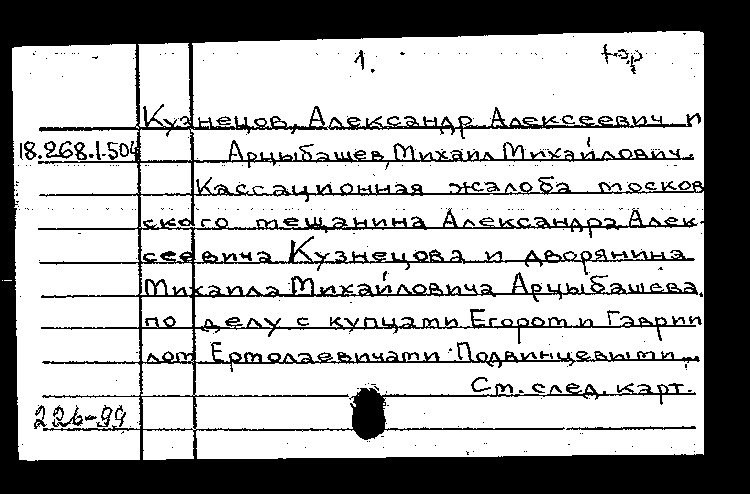 1. юр
Кузнецов, Александр Алексеевич и
18.268.1.504 Арцыбашев, Михаил Михайлович.
Кассационная жалоба москов
ского мещанина Александра Алек-
сеевича Кузнецова и дворянина
Михаила Михайловича Арцыбашева
по делу с купцами Егором и Гаврии
лом Ермолаевичами Подвинцевыми...
См. след. карт.
226-99